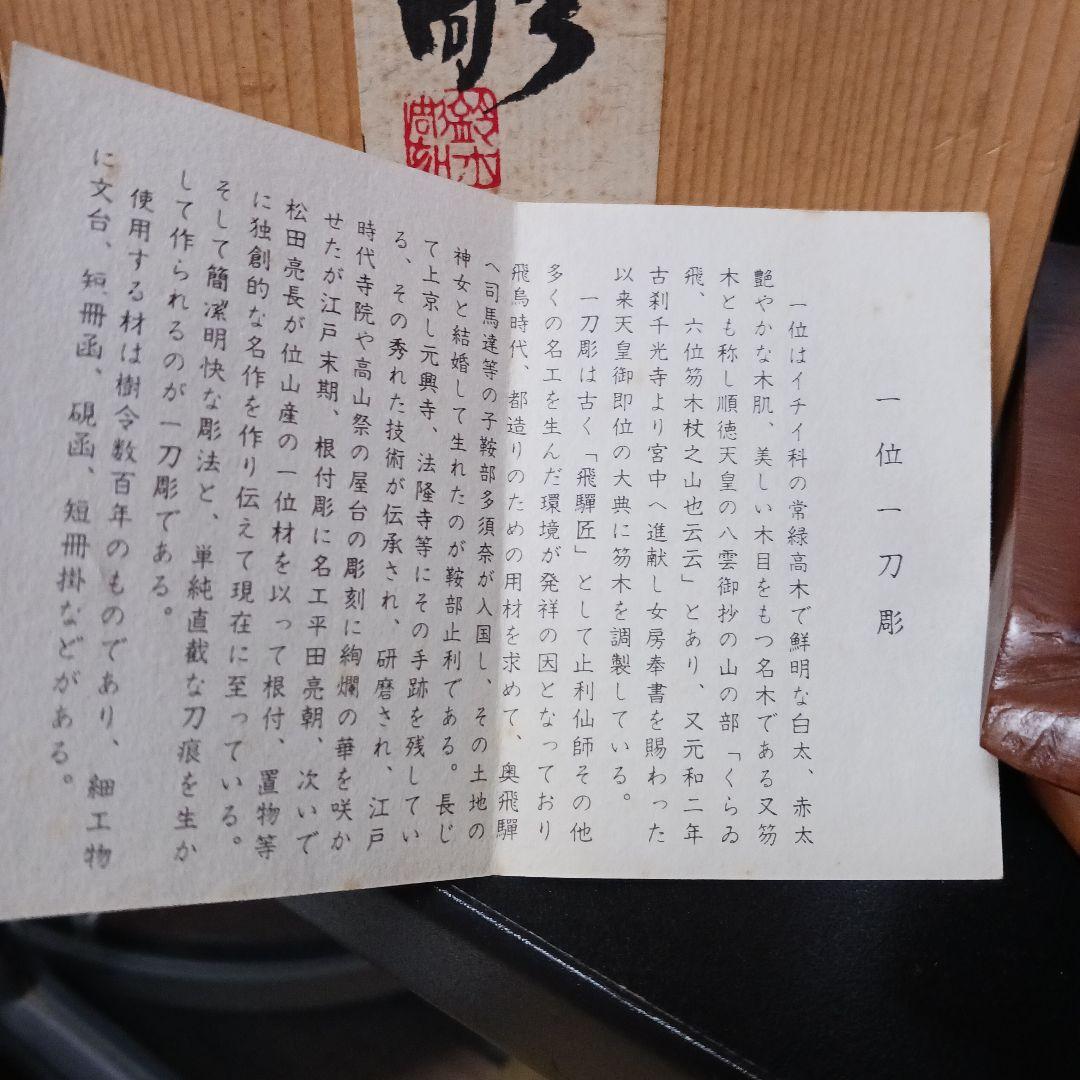 彫
鈴木
彫刻
一位一刀彫
一位はイチイ科の常緑高木で鮮明な白太、赤太
艶やかな木肌、美しい木目をもつ名木である又笏
木とも称し順徳天皇の八雲御抄の山の部「くらゐ
飛、六位笏木杖之山也云云」とあり、又元和二年
古刹千光寺より宮中へ進献し女房奉書を賜わった
以来天皇御即位の大典に笏木を調製している。
一刀彫は古く「飛驒匠」として止利仙師その他
多くの名工を生んだ環境が発祥の因となっており
飛鳥時代、都造りのための用材を求めて、奥飛驒
へ司馬達等の子鞍部多須奈が入国し、その土地の
神女と結婚して生れたのが鞍部止利である。長じ
て上京し元興寺、法隆寺等にその手跡を残してい
る、その秀れた技術が伝承され、研磨され、江戸
時代寺院や高山祭の屋台の彫刻に絢爛の華を咲か
せたが江戸末期、根付彫に名工平田亮朝、次いで
松田亮長が位山産の一位材を以って根付、置物等
に独創的な名作を作り伝えて現在に至っている。
そして簡潔明快な彫法と、単純直截な刀痕を生か
して作られるのが一刀彫である。
使用する材は樹令数百年のものであり、細工物
に文台、短冊函、硯函、短冊掛などがある。